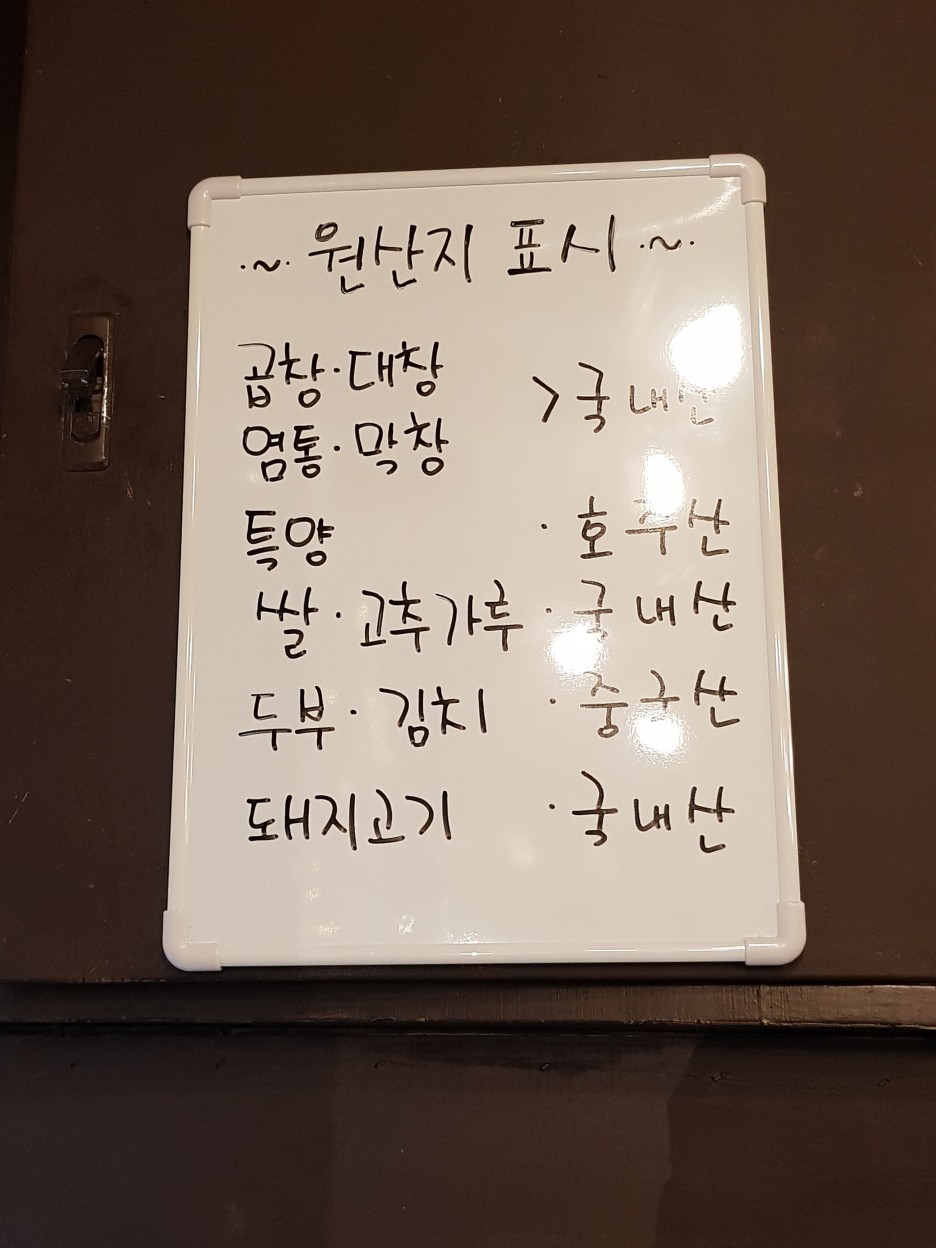 ·~· 원산지 표시 ·~·
곱창·대창
염통·막창
> 국내산
특양 · 호주산
쌀·고추가루 · 국내산
두부·김치 · 중국산
돼지고기 · 국내산